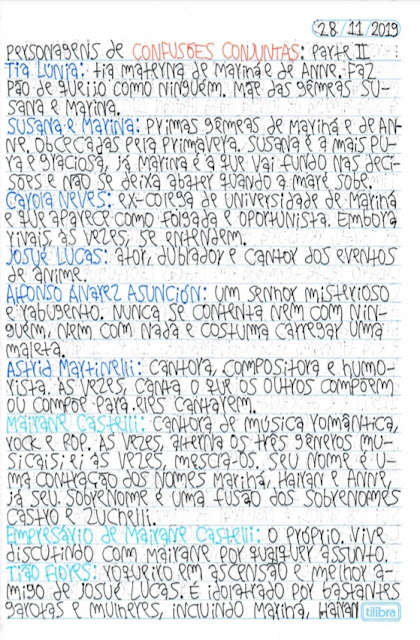 28/11/2019
PERSONAGENS DE CONFUSÕES CONJUNTAS: PARTE II
TIA LÚNIA: TIA MATERNA DE MARINÁ E DE ANNE. FAZ
PÃO DE QUEIJO COMO NINGUÉM. MÃE DAS GÊMEAS SU-
SANA E MARINA.
SUSANA E MARINA: PRIMAS GÊMEAS DE MARINÁ E DE AN-
NE. OBCECADAS PELA PRIMAVERA. SUSANA É A MAIS PU-
RA E GRACIOSA, JÁ MARINA É A QUE VAI FUNDO NAS DECI-
SÕES E NÃO SE DEIXA ABATER QUANDO A MARÉ SOBE.
CAROLA NEVES: EX-COLEGA DE UNIVERSIDADE DE MARINÁ
E QUE APARECE COMO FOLGADA E OPORTUNISTA. EMBORA
RIVAIS, ÀS VEZES, SE ENTENDEM.
JOSUÉ LUCAS: ATOR, DUBLADOR E CANTOR DOS EVENTOS
DE ANIME.
ALFONSO ÁLVAREZ ASUNCIÓN: UM SENHOR MISTERIOSO
E RABUGENTO. NUNCA SE CONTENTA NEM COM NIN-
GUÉM, NEM COM NADA E COSTUMA CARREGAR UMA
MALETA.
ASTRID MARTINELLI: CANTORA, COMPOSITORA E HUMO-
RISTA. ÀS VEZES, CANTA O QUE OS OUTROS COMPÕEM
OU COMPÕE PARA ELES CANTAREM.
MAIRANE CASTELLI: CANTORA DE MÚSICA ROMÂNTICA,
ROCK E POP. ÀS VEZES, ALTERNA OS TRÊS GÊNEROS MU-
SICAIS; E; ÀS VEZES, MESCLA-OS. SEU NOME É U-
MA CONTRAÇÃO DOS NOMES MARINÁ, HAIRAN E ANNE,
JÁ SEU SOBRENOME É UMA FUSÃO DOS SOBRENOMES
CASTRO E ZUCHELLI.
EMPRESÁRIO DE MAIRANE CASTELLI: O PRÓPRIO. VIVE
DISCUTINDO COM MAIRANE POR QUALQUER ASSUNTO.
TIÃO FLORES: ROQUEIRO EM ASCENSÃO E MELHOR A-
MIGO DE JOSUÉ LUCAS. É IDOLATRADO POR BASTANTES
GAROTAS E MULHERES, INCLUINDO MARINÁ, HAIRAN
tilibra